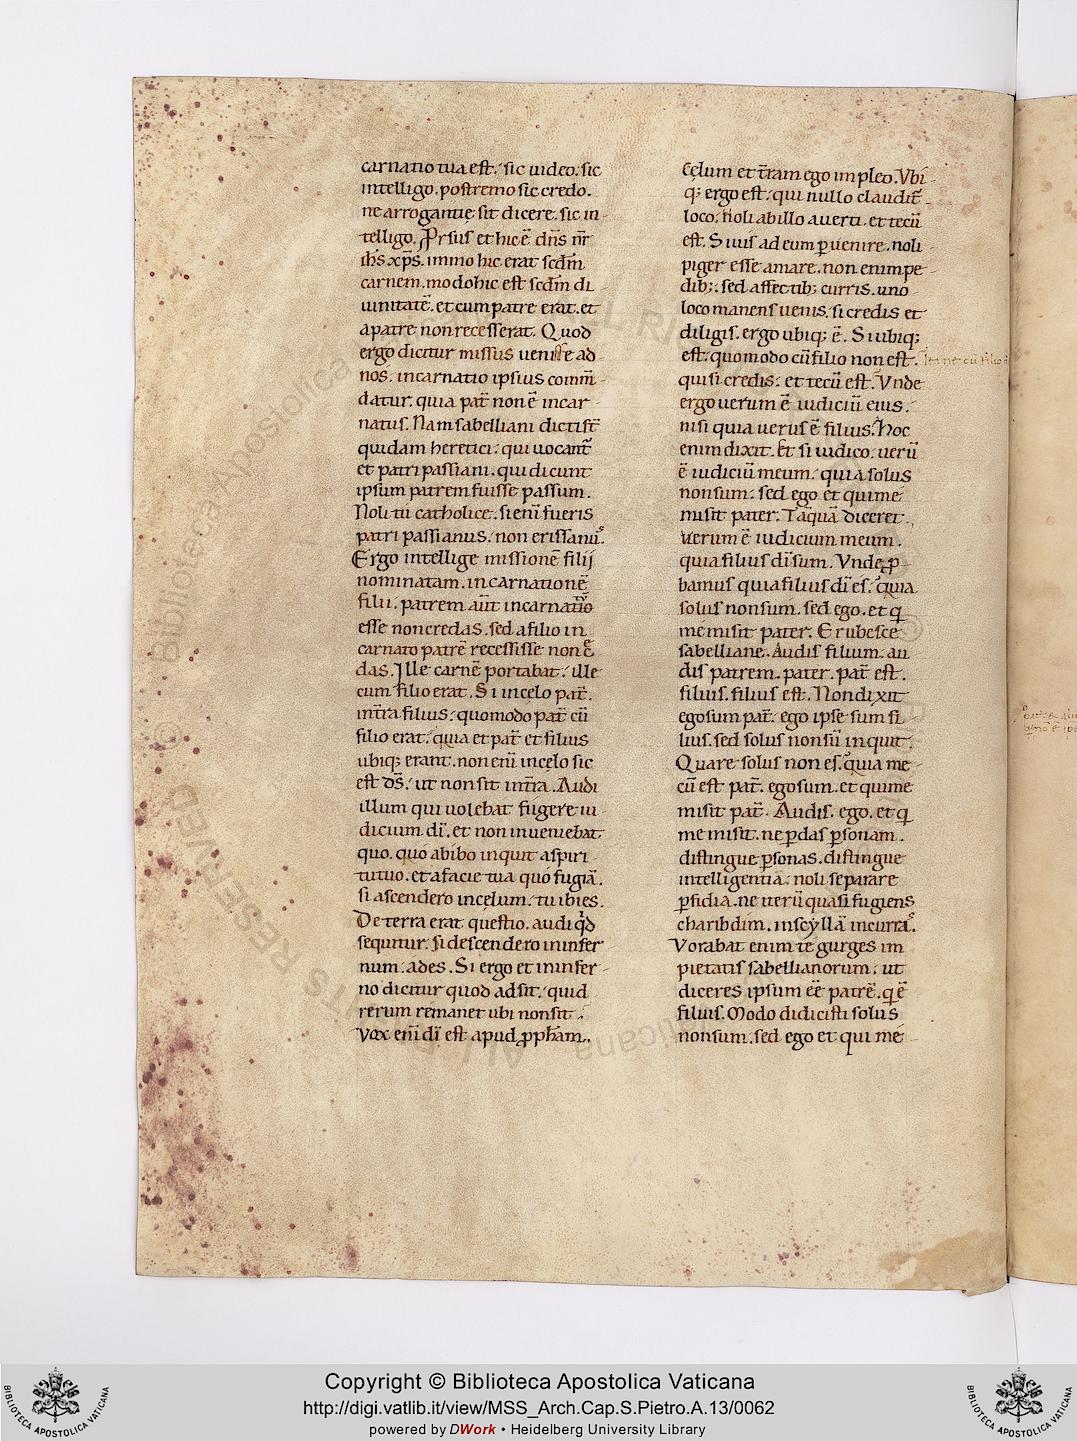 carnatio tua est. sic uideo. sic
intelligo. postremo sic credo.
ne arrogantię sit dicere. sic in
telligo. Prsus et hic ē dn̄s nr̄
ih̄s xp̄s. immo hic erat scdm̄
carnem. modo hic est scdm̄ di
uinitatē. et cum patre erat. et
a patre non recesserat. Quod
ergo dicitur missus uenisse ad
nos. incarnatio ipsius comm̄
datur. quia pat̄ non ē incar
natus. Nam sabelliani dicti st̄
quidam heretici. qui uocant̄
et patripassiani. qui dicunt
ipsum patrem fuisse passum.
Noli tu catholice. si eni᷑ fueris
patripassianus. non eris sanus.
Ergo intellige missionē filij
nominatam. incarnationē
filii. patrem aūt incarnatū
esse non credas. sed a filio in
carnato patrē recessisse non c̄
das. Ille carnē portabat. ille
cum filio erat. Si in cęlo pat̄.
in t̄ra filius. quomodo pat̄ cū
filio erat. quia et pat̄ et filius
ubiq; erant. non eni᷑ in cęlo sic
est ds̄. ut non sit in t̄ra. Audi
illum qui uolebat fugere iu
dicium di᷑. et non inueniebat
quo. quo abibo inquit a spiri
tu tuo. et a facie tua quo fugiā.
si ascendero in cęlum. tu ibi es.
De terra erat questio. audi qd̄
sequitur. si descendero in infer
num. ades. Si ergo et in infer
no dicitur quod adsit. quid
rerum remanet ubi non sit.
Vox eni᷑ di᷑ est apud ꝓpham̄.
cęlum et t̄ram ego impleo. Vbi
q; ergo est. qui nullo claudit̄
loco. noli ab illo auerti. et tecū
est. Si uis ad eum ꝑuenire. noli
piger esse amare. non enim pe
dib;. sed affectib; curris. uno
loco manens uenis. si credis et
diligis. ergo ubiq; ē. Si ubiq;
est. quomodo cū filio non est.
qui si credis. et tecū est. Vnde
ergo uerum ē iudiciū eius.
nisi quia uerus ē filius. Hoc
enim dixit. Et si iudico. uerū
ē iudiciū meum. quia solus
non sum. sed ego et qui me
misit pater. Tāquā diceret.
Verum ē iudicium meum.
quia filius di᷑ sum. Vnde ꝓ
bamus quia filius di᷑ es. quia
solus non sum. sed ego. et q
me misit pater. Erubesce
sabelliane. Audis filium. au
dis patrem. pater. pat̄ est.
filius. filius est. Non dixit
ego sum pat̄. ego ipse sum fi
lius. sed solus non sū inquit.
Quare solus non es. quia me
cū est pat̄. ego sum. et qui me
misit pat̄. Audis. ego. et q
me misit. ne ꝑdas ꝑsonam.
distingue ꝑsonas. distingue
intelligentia. noli separare
ꝑfidia. ne iterū quasi fugiens
charibdim. in scyllā incurras.
Vorabat enim te gurges im
pietatis sabellianorum. ut
diceres ipsum eē patrē. q ē
filius. Modo didicisti solus
non sum. sed ego et qui me
Copyright © Biblioteca Apostolica Vaticana
http://digi.vatlib.it/view/MSS_Arch.Cap.S.Pietro.A.13/0062
powered by DWork • Heidelberg University Library
BIBLIOTECA APOSTOLICA VATICANA
BIBLIOTECA APOSTOLICA VATICANA